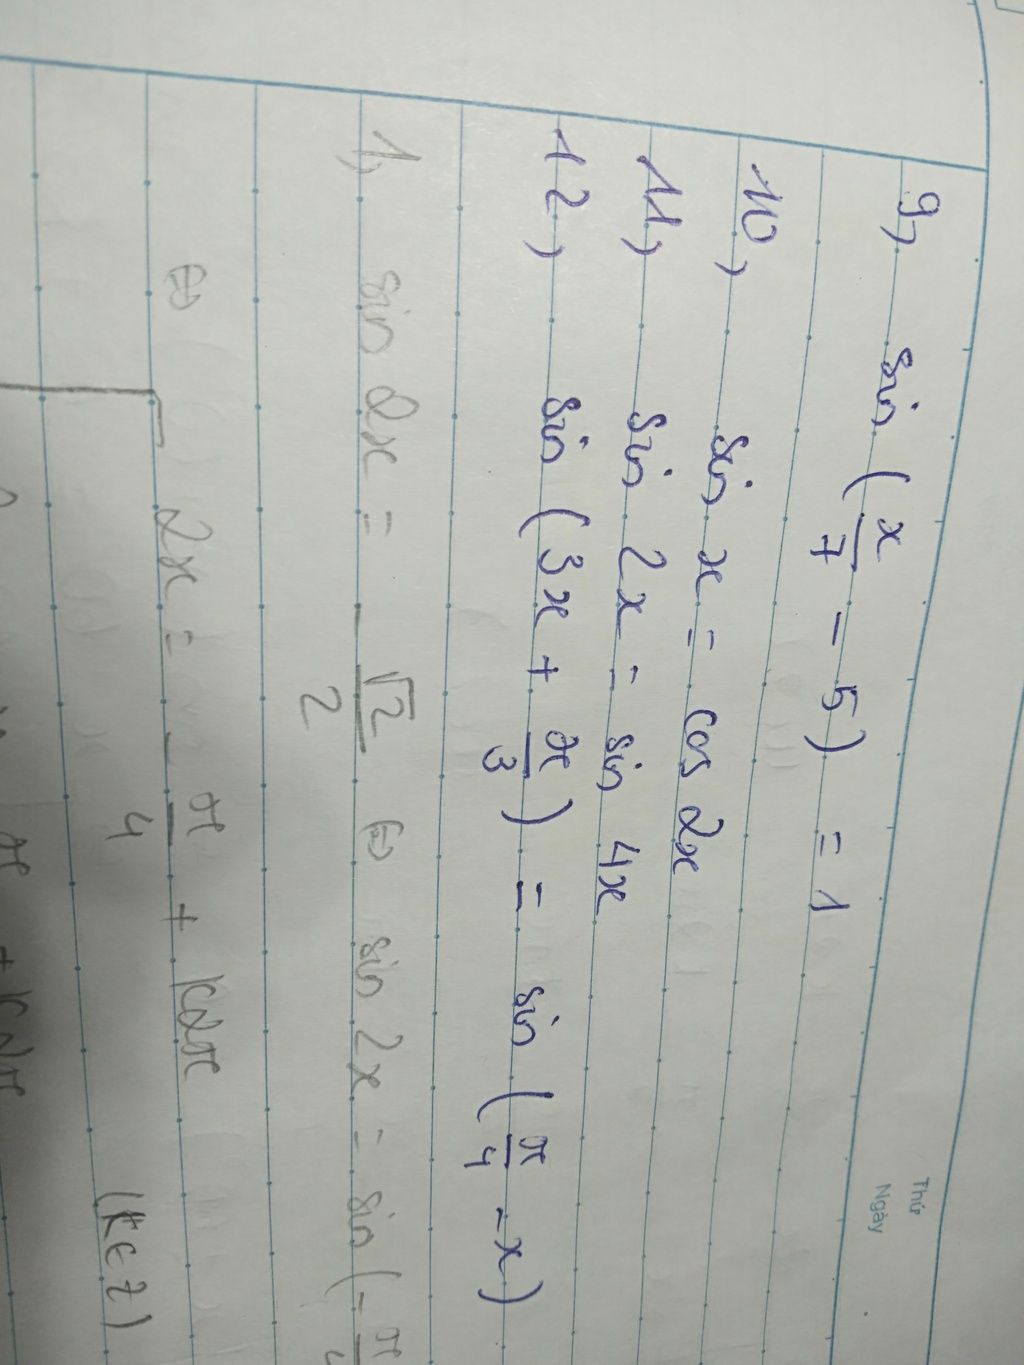 Thứ
Ngày
9, sin (x/7 - 5) = 1
10, sin x = cos 2x
11, sin 2x = sin 4x
12, sin (3x + π/3) = sin (π/4 - x)
1, sin 2x = - √2/2 ⇔ sin 2x = sin (- π/4
⇔ 2x = - π/4 + k2π
(k ∈ Z)
π + k2π